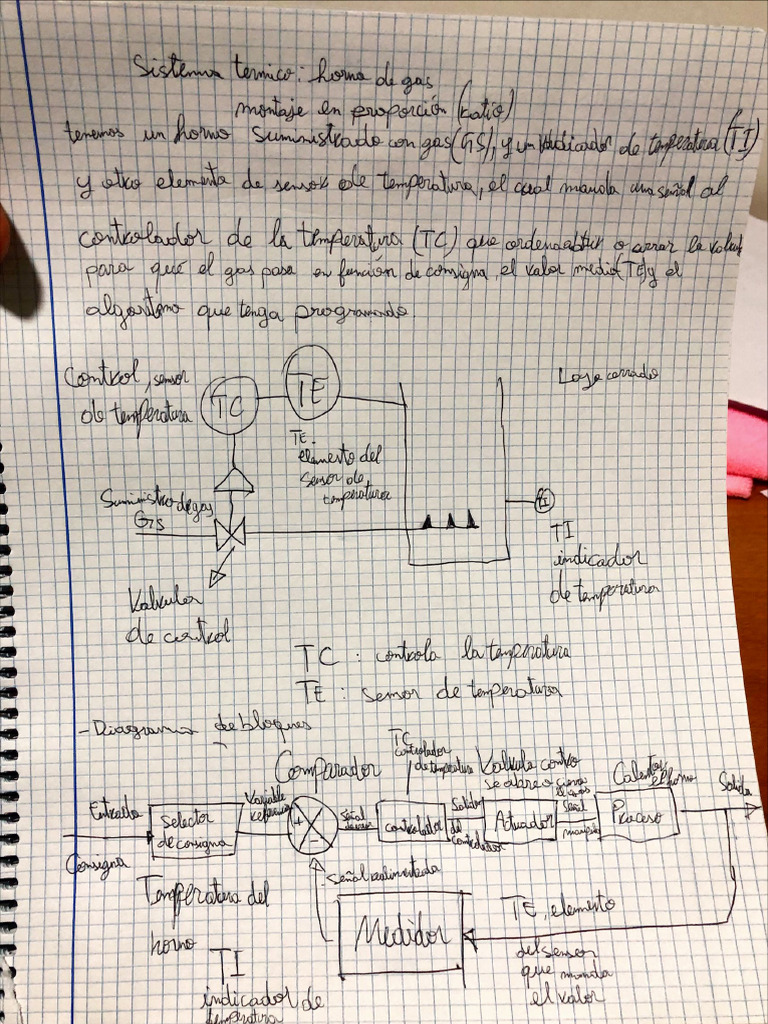 Sistema termico: horno de gas
montaje en proporción (ratio)
tenemos un horno suministrado con gas (GS), y un indicador de temperatura (TI)
y otro elemento de sensor de temperatura, el cual manda una señal al
controlador de la temperatura (TC) que ordena abrir o cerrar la valvula
para que el gas pasa en función de consigna, el valor medio (TE) y el
algoritmo que tenga programado.
Control, sensor
de temperatura
TC
TE
Lazo cerrado
TE.
elemento del
sensor de
temperatura
Suministro de gas
GS
TI
TI
indicador
de temperatura
Valvula
de control
TC : controla la temperatura
TE : sensor de temperatura
- Diagrama de bloques
Comparador
TC
controlador
de temperatura
Valvula control
se abre o cierra
el gas
Calentar el horno
Entrada
Consigna
Selector
de consigna
Variable
referencia
+
-
Señal
de error
controlador
Salida
del
controlador
Actuador
Señal
Proceso
Salida
Señal realimentada
Temperatura del
horno
Medidor
TE, elemento
del sensor
que manda
el valor
TI
indicador de
temperatura